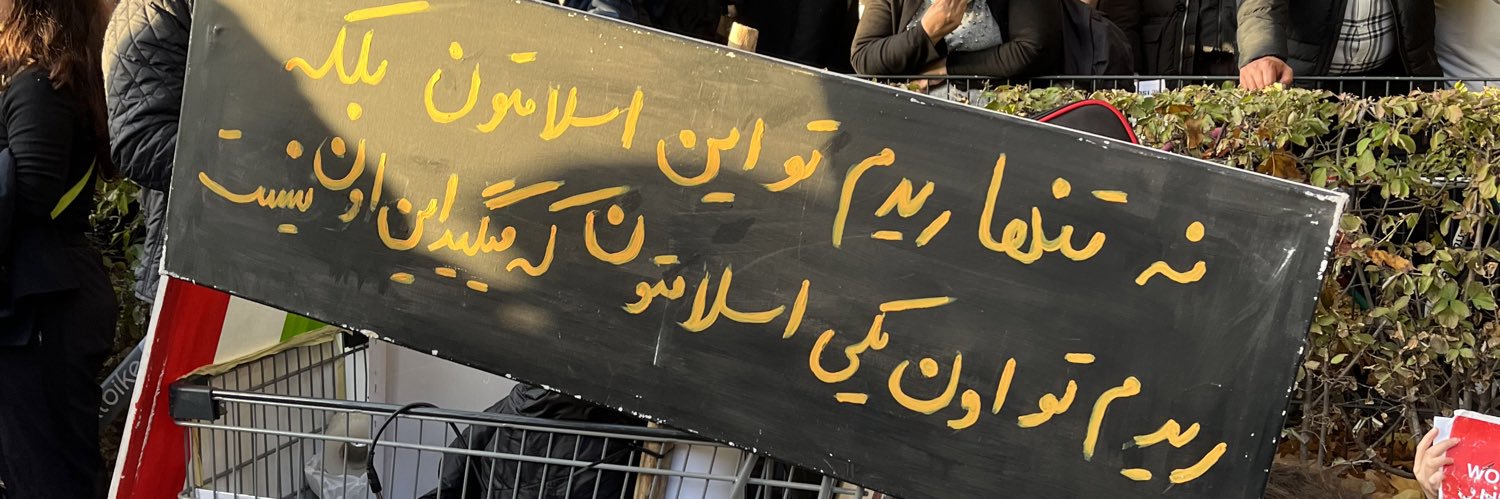 نه تنها ریدم تو این اسلامتون بلکه
ریدم تو اون یکی اسلامتون که میگید این اون نیست
WO